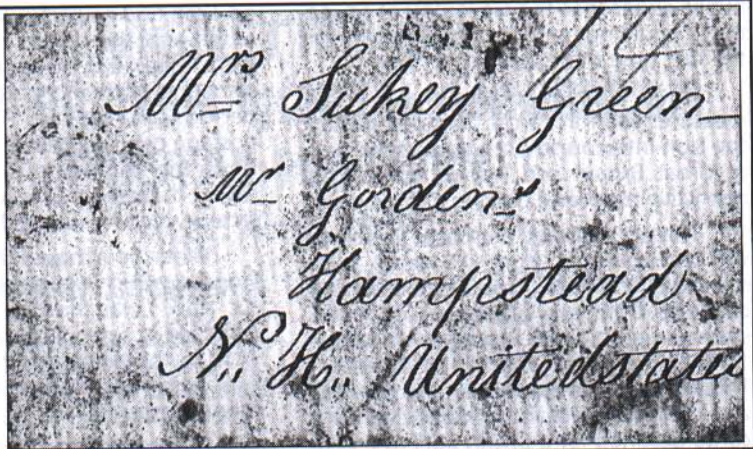 14
Mrs Sukey Green
Mr Gorden's
Hampstead
N. H. Unitedstates